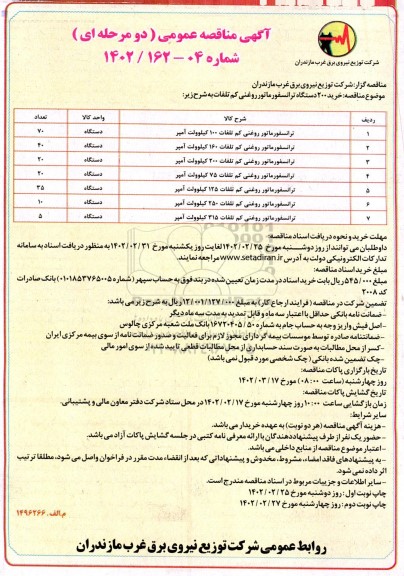 آگهی مناقصه عمومی ( دو مرحله ای )
شماره ۰۴ - ۱۶۲ / ۱۴۰۲
شرکت توزیع نیروی برق غرب مازندران
مناقصه گزار: شرکت توزیع نیروی برق غرب مازندران
موضوع مناقصه: خرید ۲۰۰ دستگاه ترانسفورماتور روغنی کم تلفات به شرح زیر:
ردیف شرح کالا واحد کالا تعداد
۱ ترانسفورماتور روغنی کم تلفات ۱۰۰ کیلوولت آمپر دستگاه ۷۰
۲ ترانسفورماتور روغنی کم تلفات ۱۶۰ کیلوولت آمپر دستگاه ۴۰
۳ ترانسفورماتور روغنی کم تلفات ۲۰۰ کیلوولت آمپر دستگاه ۲۰
۴ ترانسفورماتور روغنی کم تلفات ۷۵ کیلوولت آمپر دستگاه ۲۰
۵ ترانسفورماتور روغنی کم تلفات ۱۲۵ کیلوولت آمپر دستگاه ۳۵
۶ ترانسفورماتور روغنی کم تلفات ۲۵۰ کیلوولت آمپر دستگاه ۱۰
۷ ترانسفورماتور روغنی کم تلفات ۳۱۵ کیلوولت آمپر دستگاه ۵
مهلت خرید و نحوه دریافت اسناد مناقصه:
داوطلبان می توانند از روز دوشنبه مورخ ۱۴۰۲/۰۲/۲۵ لغایت روز یکشنبه مورخ ۱۴۰۲/۰۲/۳۱ به منظور دریافت اسناد به سامانه
تدارکات الکترونیکی دولت به آدرس www.setadiran.ir مراجعه نمایند.
مبلغ خرید اسناد مناقصه:
مبلغ ۵۴۵/۰۰۰ ریال بابت خرید اسناد در مدت زمان تعیین شده در بند فوق به حساب سپهر (شماره ۰۱۰۱۸۵۳۷۶۵۰۰۵) بانک صادرات
کد ۲۰۰۸
تضمین شرکت در مناقصه (فرایند ارجاع کار) به مبلغ ۱۲/۰۰۱/۱۲۷/۰۰۰ ریال به شرح زیر می باشد:
- ضمانت نامه بانکی حداقل با اعتبار سه ماه و قابل تمدید به مدت سه ماه دیگر
- اصل فیش واریز وجه به حساب جام به شماره ۱۶۷۲۰۴۰۵/۵۰ بانک ملت شعبه مرکزی چالوس
- ضمانتنامه صادره توسط موسسات بیمه گر دارای مجوز لازم برای فعالیت و صدور ضمانت نامه از سوی بیمه مرکزی ایران
- کسر از محل مطالبات به صورت سند حسابداری از محل مطالبات قطعی تایید شده از سوی امور مالی
- چک تضمین شده بانکی (چک شخصی مورد قبول نمی باشد)
تاریخ بارگزاری پاکات مناقصه:
روز چهارشنبه (ساعت ۰۸:۰۰) مورخ ۱۴۰۲/۰۳/۱۷
تاریخ گشایش پاکات مناقصه:
زمان بازگشایی ساعت ۱۰:۰۰ روز چهارشنبه مورخ ۱۴۰۲/۰۳/۱۷ در محل ستاد شرکت دفتر معاون مالی و پشتیبانی.
سایر شرایط:
- هزینه آگهی مناقصه (هر دو نوبت) به عهده خریدار می باشد.
- حضور یک نفر از طرف پیشنهاددهندگان با ارائه معرفی نامه کتبی در جلسه گشایش پاکات آزاد می باشد.
- اعتبار موضوع مناقصه از منابع داخلی می باشد.
- به پیشنهادهای فاقد امضاء، مشروط، مخدوش و پیشنهاداتی که بعد از انقضاء مدت مقرر در فراخوان واصل می شود، مطلقا ترتیب
اثر داده نمی شود.
- سایر اطلاعات و جزییات مربوط در اسناد مناقصه مندرج است.
چاپ نوبت اول: روز دوشنبه مورخ ۱۴۰۲/۰۲/۲۵
چاپ نوبت دوم: روز چهارشنبه مورخ ۱۴۰۲/۰۲/۲۷
م.الف. ۱۴۹۶۲۶۶
روابط عمومی شرکت توزیع نیروی برق غرب مازندران